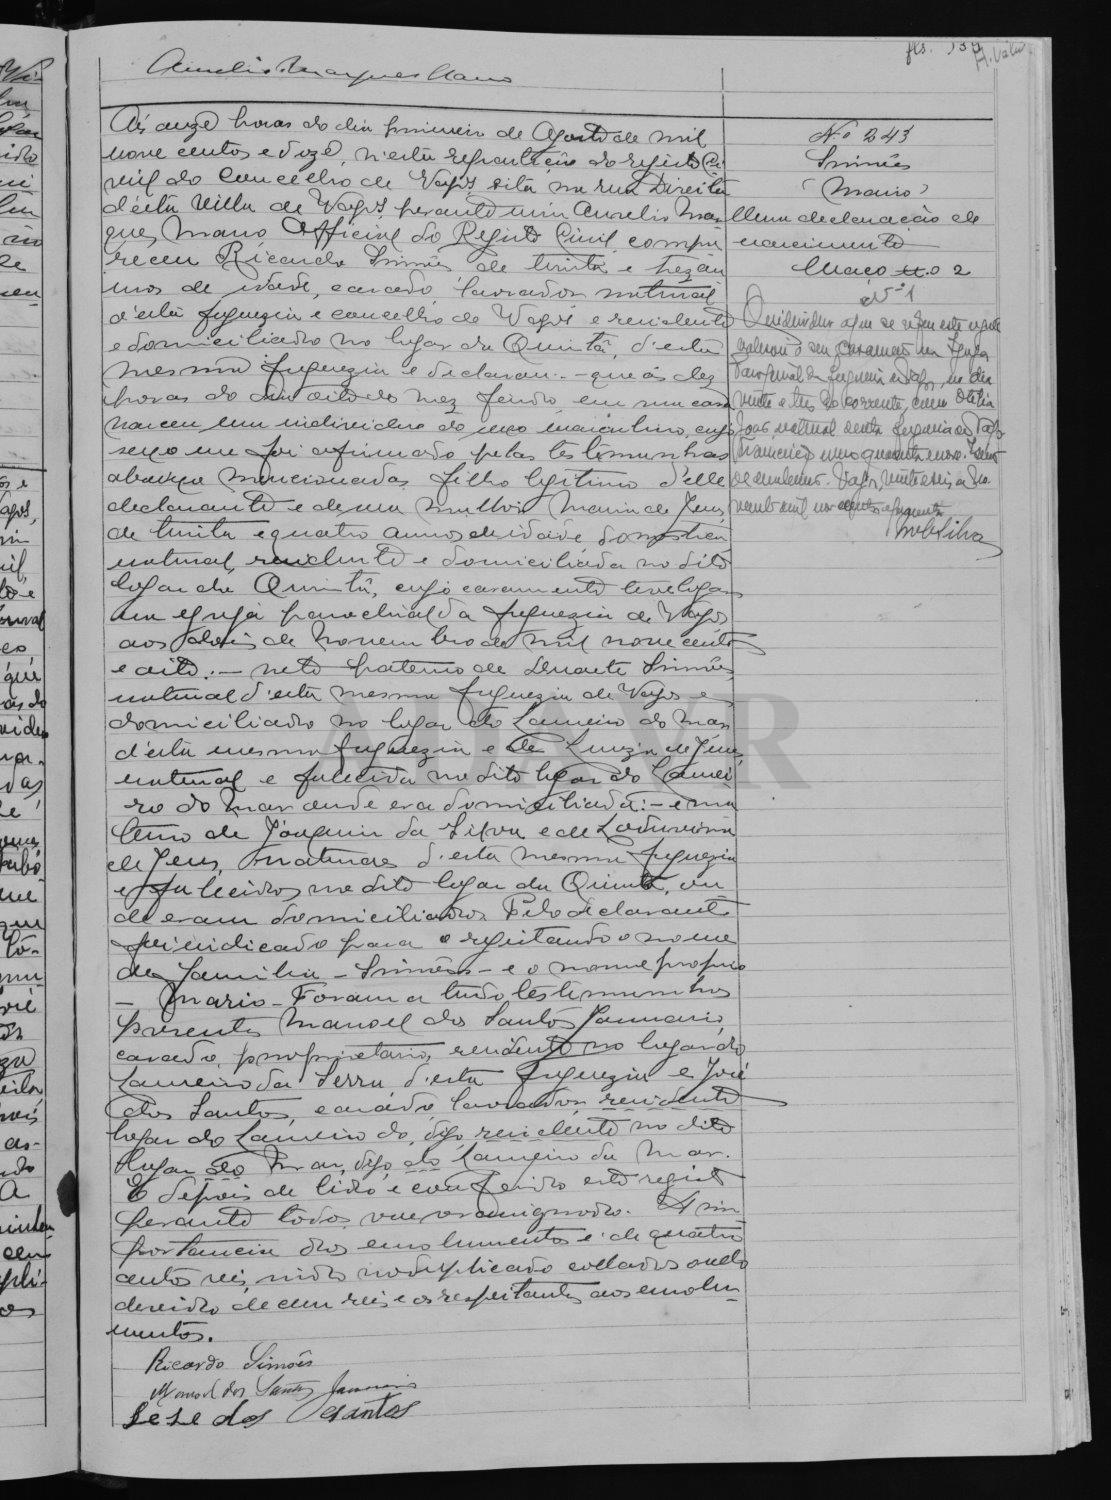 Aurelio Marques Mano
Ás onze horas do dia primeiro de Agosto de mil
nove centos e doze, n'esta repartição do registo Ci-
vil do Concelho de Vagos sita na rua Direita
d'esta Villa de Vagos, perante mim Aurelio Mar-
ques Mano Official do Registo Civil compa-
receu Ricardo Simões de trinta e trez an-
nos de idade, casado, lavrador natural
d'esta freguezia e concelho de Vagos e residente
e domiciliado no logar da Quintã, d'esta
mesma freguezia e declarou: - que ás dez
horas do dia oito do mez findo, em sua casa
nasceu um individuo do sexo masculino, cujo
sexo me foi afirmado pelas testemunhas
abaixo mencionadas, filho legitimo d'elle
declarante e de sua mulher Maria de Jesus,
de trinta e quatro annos de idade, domestica
natural, residente e domiciliada no dito
logar da Quintã, cujo casamento teve logar
na egreja parochial da freguezia de Vagos
aos dois de Novembro de mil nove centos
e oito: - neto paterno de Duarte Simões,
natural d'esta mesma freguezia de Vagos e
domiciliado no logar do Lameiro do Mar
d'esta mesma freguezia e de Luzia de Jesus,
natural e falecida no dito logar do Lamei-
ro do Mar onde era domiciliada: - e ma-
terno de Joaquim da Silva e de
de Jesus, naturaes d'esta mesma freguezia
e falecidos no dito logar da Quintã, on-
de eram domiciliados. Pelo declarante
foi indicado para o registando o nome
de familia - Simões - e o nome proprio
- Mario - Foram a tudo testemunhas
presentes Manoel dos Santos Januario,
casado, proprietario, residente no logar do
Lameiro da Serra d'esta freguezia e José
dos Santos, casado, lavrador, residente
logar do Lameiro do, digo, residente no dito
logar do Mar, digo do Lameiro do Mar.
E depois de lido e conferido este registo
perante todos, vae ser assignado. A im-
portancia dos emolumentos é de quatro
centos reis, indo no duplicado collado o sello
devido de cem reis e os respeitantes aos emolu-
mentos.
Ricardo Simões
Manoel dos Santos Januario
José dos Santos
fls. 13
Nº 243
Simões
(Mario)
Uma declaração de
nascimento
Maço n.º 2
Nº 1
O individuo a que se refere este registo
celebrou o seu casamento na Igreja
Paroquial da freguesia de Vagos, no dia
vinte e três do corrente, com Otilia
natural desta freguesia de Vagos.
de casamentos. Vagos, vinte e seis de No-
vembro de mil novecentos e quarenta
Silva
ADAVR